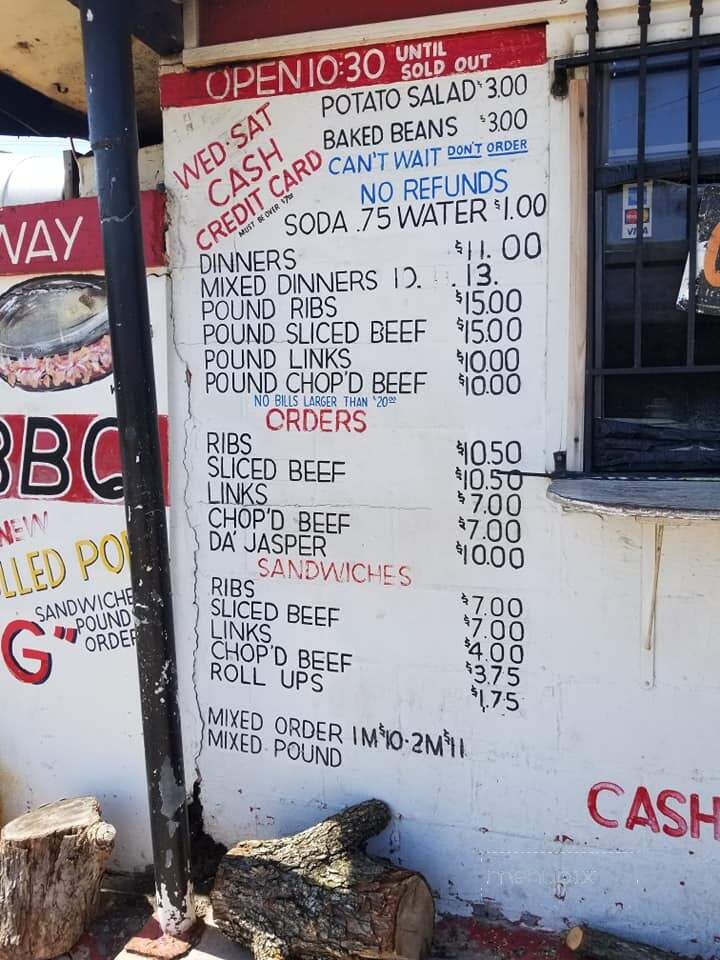 OPEN 10:30 UNTIL SOLD OUT
POTATO SALAD $3.00
BAKED BEANS $3.00
WED-SAT
CASH
CREDIT CARD
MUST BE OVER $7.00
CAN'T WAIT DON'T ORDER
NO REFUNDS
SODA .75 WATER $1.00
DINNERS $11.00
MIXED DINNERS 13.
POUND RIBS $15.00
POUND SLICED BEEF $15.00
POUND LINKS $10.00
POUND CHOP'D BEEF $10.00
NO BILLS LARGER THAN $20.00
ORDERS
RIBS $10.50
SLICED BEEF $10.50
LINKS $7.00
CHOP'D BEEF $7.00
DA' JASPER $10.00
SANDWICHES
RIBS $7.00
SLICED BEEF $7.00
LINKS $4.00
CHOP'D BEEF $3.75
ROLL UPS $1.75
MIXED ORDER 1M $10-2M $11
MIXED POUND
WAY
BBQ
NEW
LLED PO
SANDWICHE
POUND
ORDER
G"
CASH
VISA
menupix